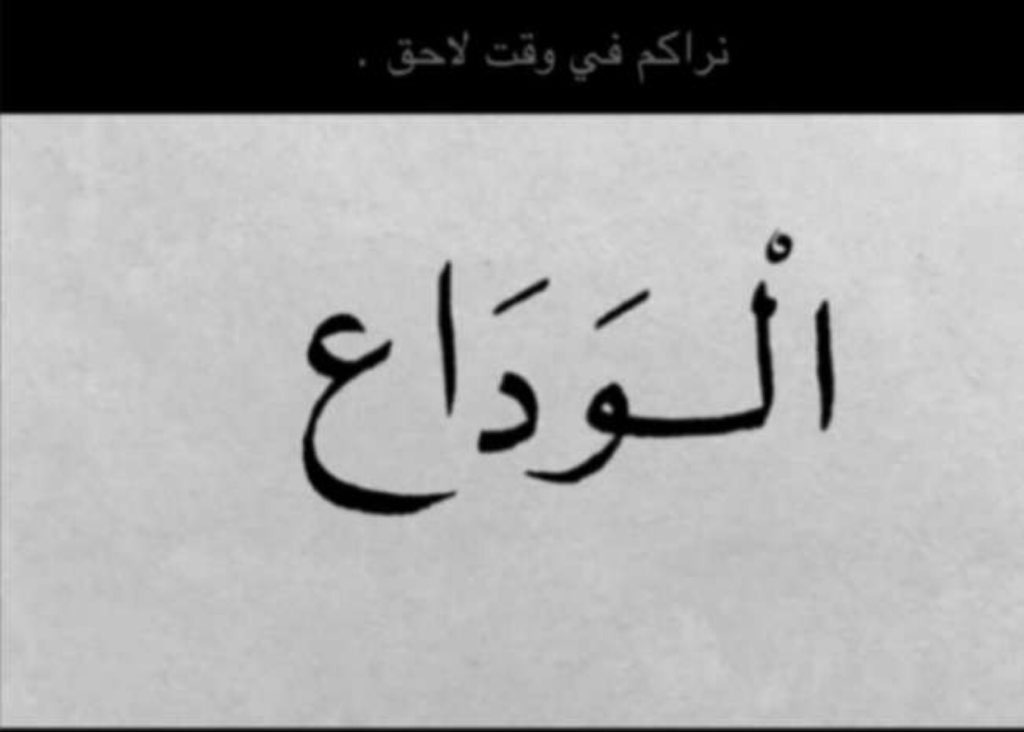 نراكم في وقت لاحق .
الْوَدَاع